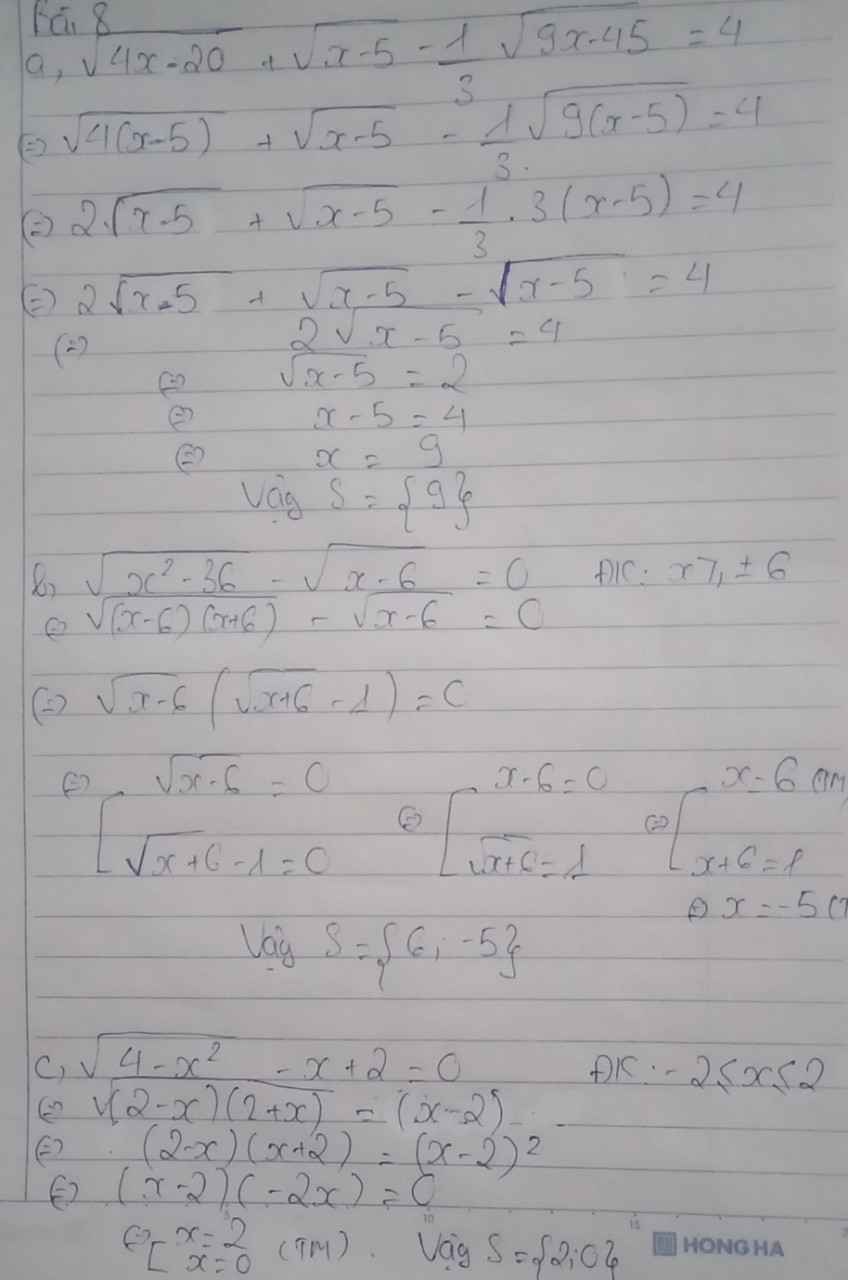 Bài 8
a, √(4x-20) + √(x-5) - 1/3 √(9x-45) = 4
⇔ √(4(x-5)) + √(x-5) - 1/3 √(9(x-5)) = 4
⇔ 2√(x-5) + √(x-5) - 1/3 . 3(x-5) = 4
⇔ 2√(x-5) + √(x-5) - √(x-5) = 4
⇔ 2√(x-5) = 4
⇔ √(x-5) = 2
⇔ x-5 = 4
⇔ x = 9
Vậy S = {9}
b, √(x²-36) - √(x-6) = 0 ĐK: x ≥ ±6
⇔ √((x-6)(x+6)) - √(x-6) = 0
⇔ √(x-6) (√(x+6) - 1) = 0
⇔ [ √(x-6) = 0 ⇔ [ x-6 = 0 ⇔ [ x = 6 (TM
√(x+6) - 1 = 0 √(x+6) = 1 x+6 = 1
⇔ x = -5 (T
Vậy S = {6; -5}
c, √(4-x²) - x + 2 = 0 ĐK: -2 ≤ x ≤ 2
⇔ √((2-x)(2+x)) = (x-2)
⇔ (2-x)(x+2) = (x-2)²
⇔ (x-2)(-2x) = 0
⇔ [ x = 2
x = 0 (TM). Vậy S = {2; 0}
10 15
HONG HA